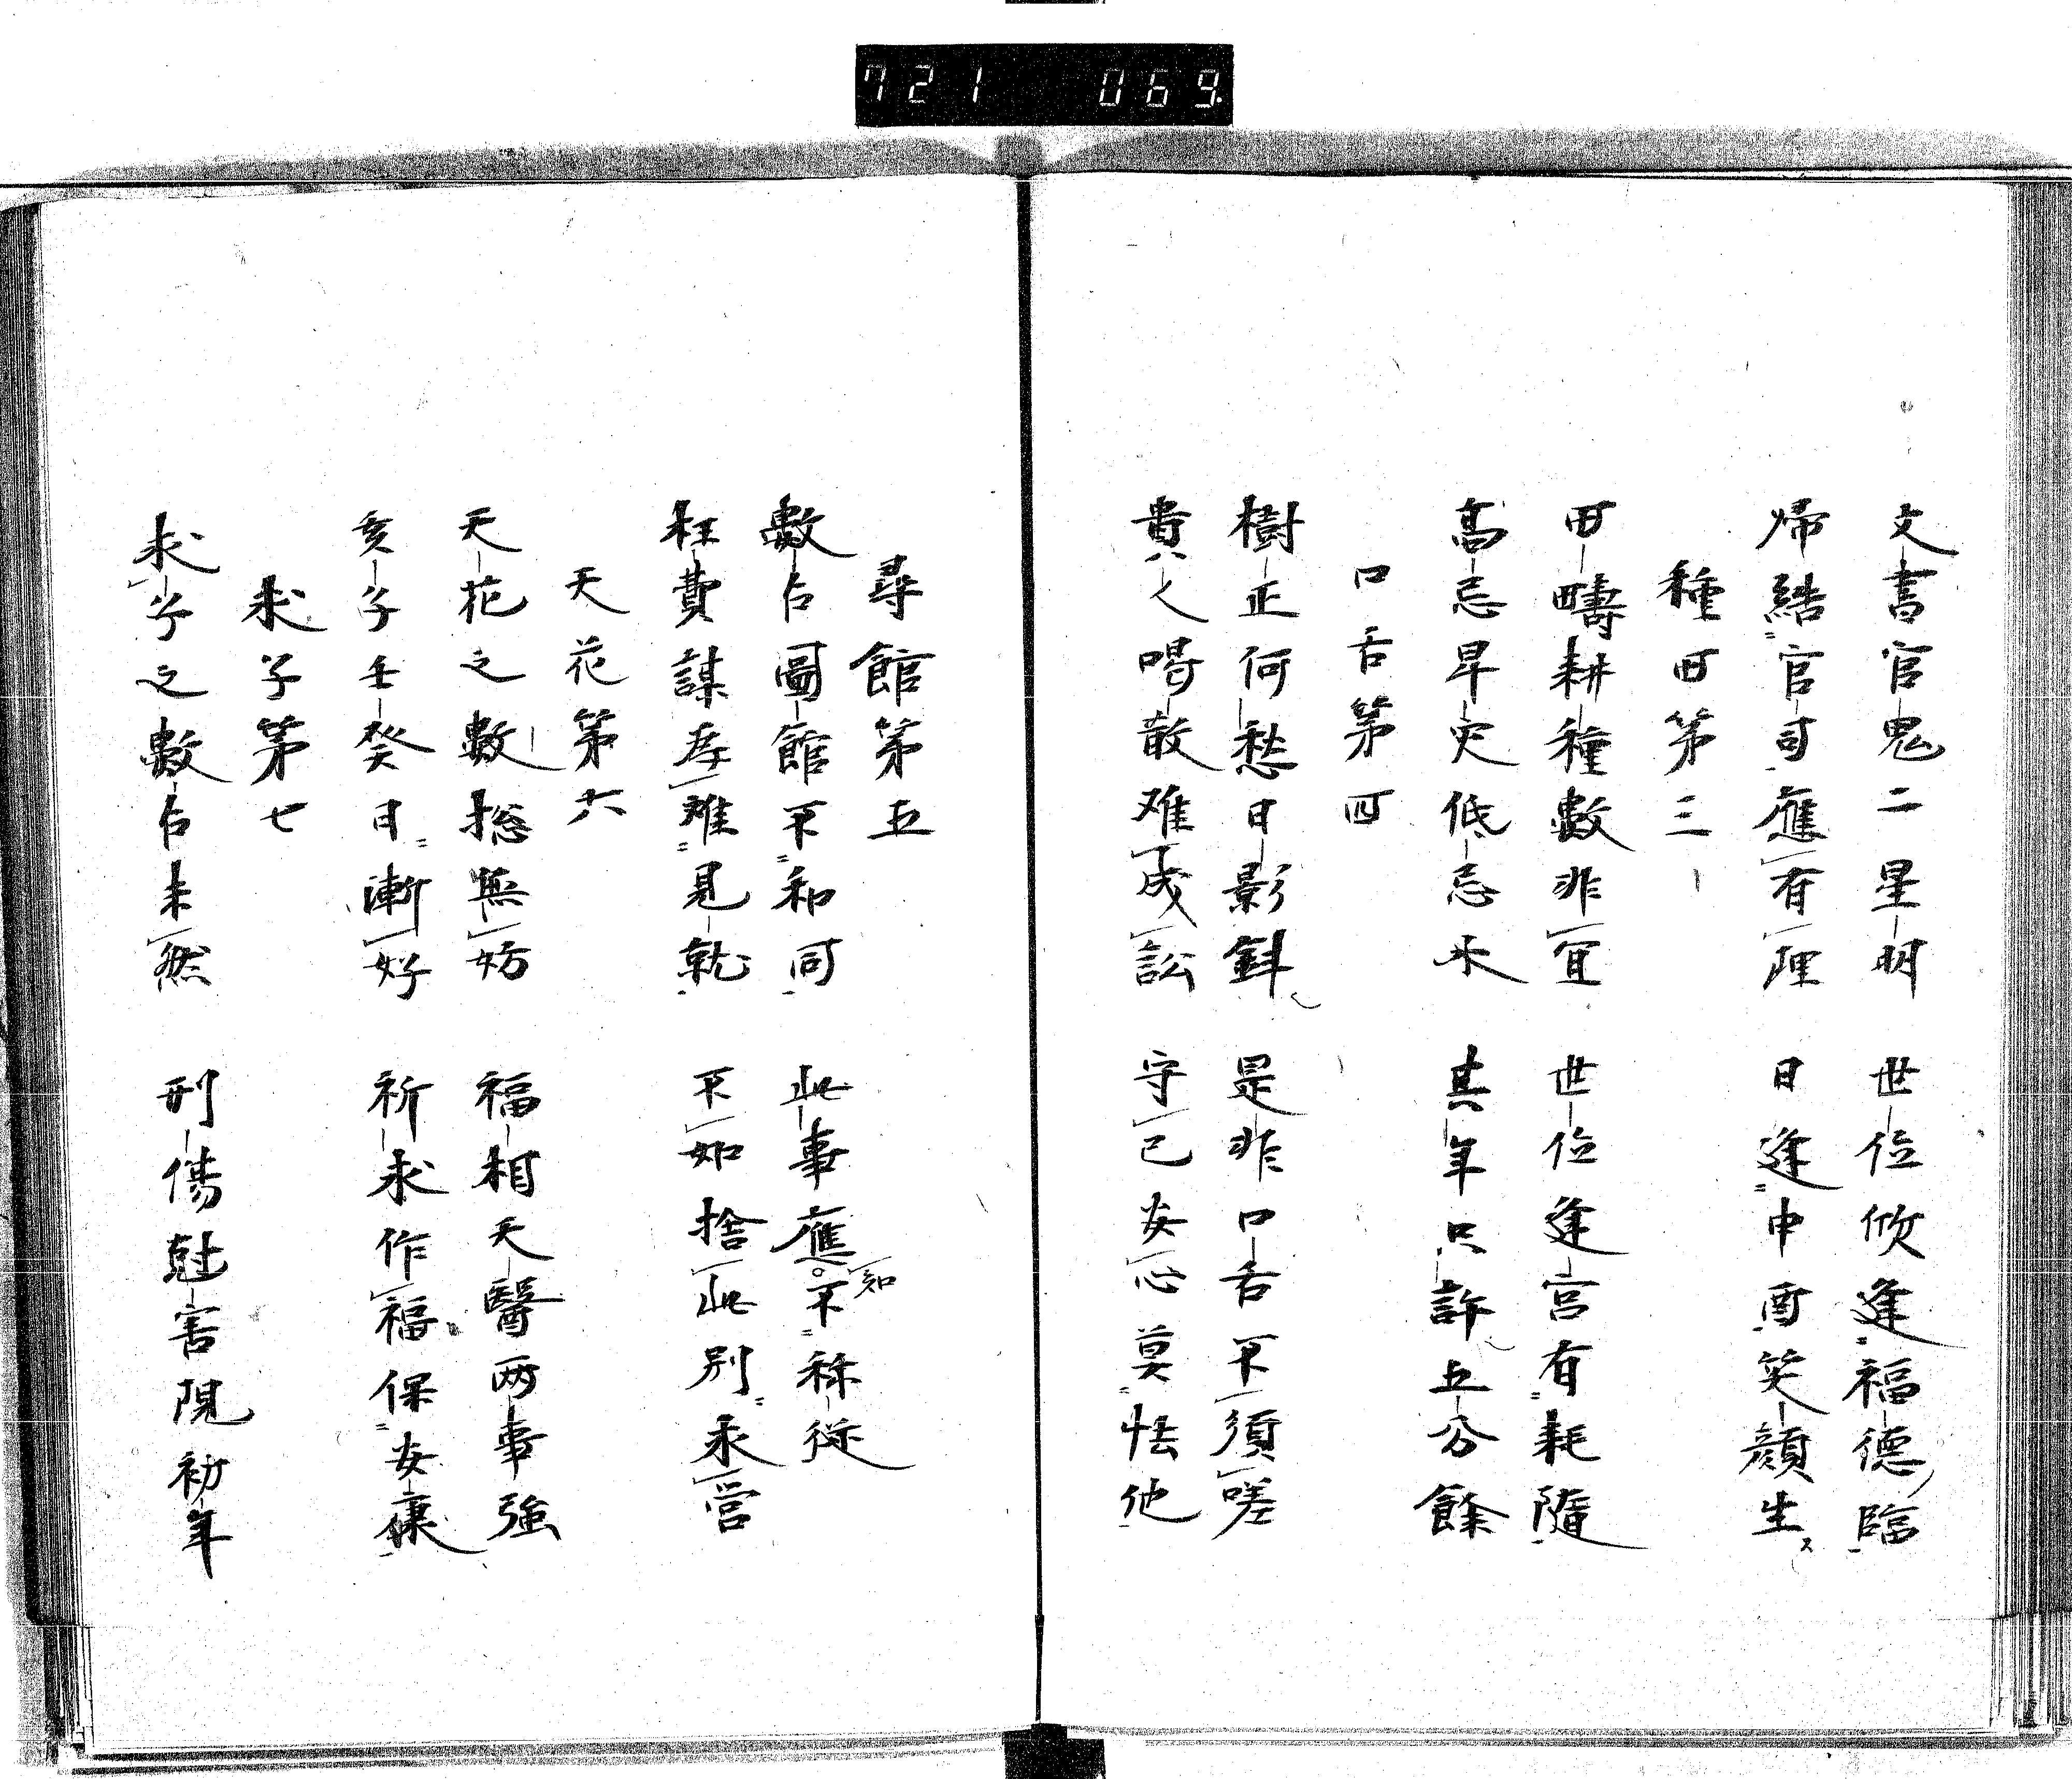 721 069
文書官鬼二星明 世位欣逢福德臨
官司應有理 日逢申酉笑顔生
種田第三
田疇耕種數非宜 世位逢宮有耗隨
高忌旱災低忌水 其年只許五分餘
口舌第四
樹正何愁日影斜 是非口舌不須嗟
貴人喝散难成訟 守己安心莫怯他
尋館第五
數占圖館不和同 此事應知不称從
枉費謀為难見就 不如捨此別求営
天花第六
天花之數捴無妨 福相天醫両事強
亥子壬癸日漸好 祈求作福保安康
求子第七
求子之數占未然 刑傷尅害現初年